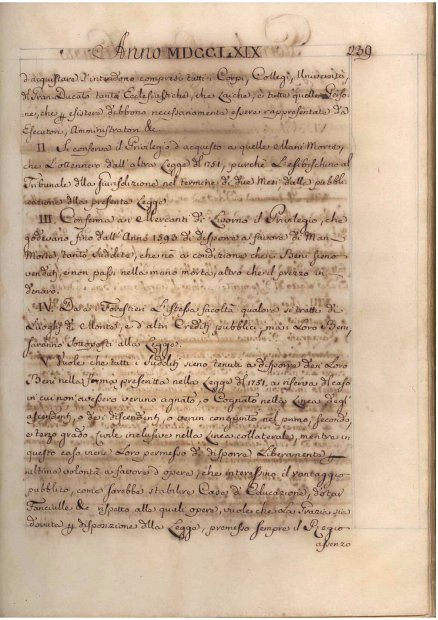 Anno MDCCLXIX 239
d'acquistare s'intendono compresi tutti i Corpi, Collegi, Università,
del Gran-Ducato tanto Ecclesiastiche, che Laiche, e tutte quelle Perso-
ne, che esistere debbono necessariamente essere rappresentate da
Esecutori, Amministratori &c.
II. Si conserva il Privilegio d'acquisto a quelle Mani Morte,
che l'ottennero dall'altra Legge del 1751, purchè l'esibischino al
Tribunale della Giurisdizione nel termine di due Mesi dalla pubbli-
cazione della presente Legge
III. Conferma ai Mercanti di Livorno il Privilegio, che
godevano fino dall'Anno 1593 di disporre a favore di Man-
Morte, tanto Suddite, che nò a condizione che i Beni sieno
venduti, e non passi nella mano morta, altro che il prezzo in
denaro.
IV. Dà ai Forestieri l'istessa facoltà qualora si tratti di
Luoghi di Monte, e d'altri Crediti pubblici, mà i Loro Beni
saranno sottoposti alla Legge.
V. Vuole che tutti i Sudditi sieno tenuti a disporre dei Loro
Beni nella forma prescritta nella Legge del 1751, a riserva del caso
in cui non avessero veruno agnato, o Cognato nella Linea degli
ascendenti, o dei discendenti, o verun congiunto nel primo, secondo
e terzo grado Civile inclusive nella Linea collaterale, mentre in
questo caso viene Loro permesso di disporre Liberamente
ultima volontà a favore d'opere, che interessino il vantaggio
pubblico, come sarebbe stabilire Case di Educazione, dotar
Fanciulle &c. rispetto alle quali opere, vuole che La Grazia sia
dovuta disposizione della Legge, premesso sempre il Regio
assenzo